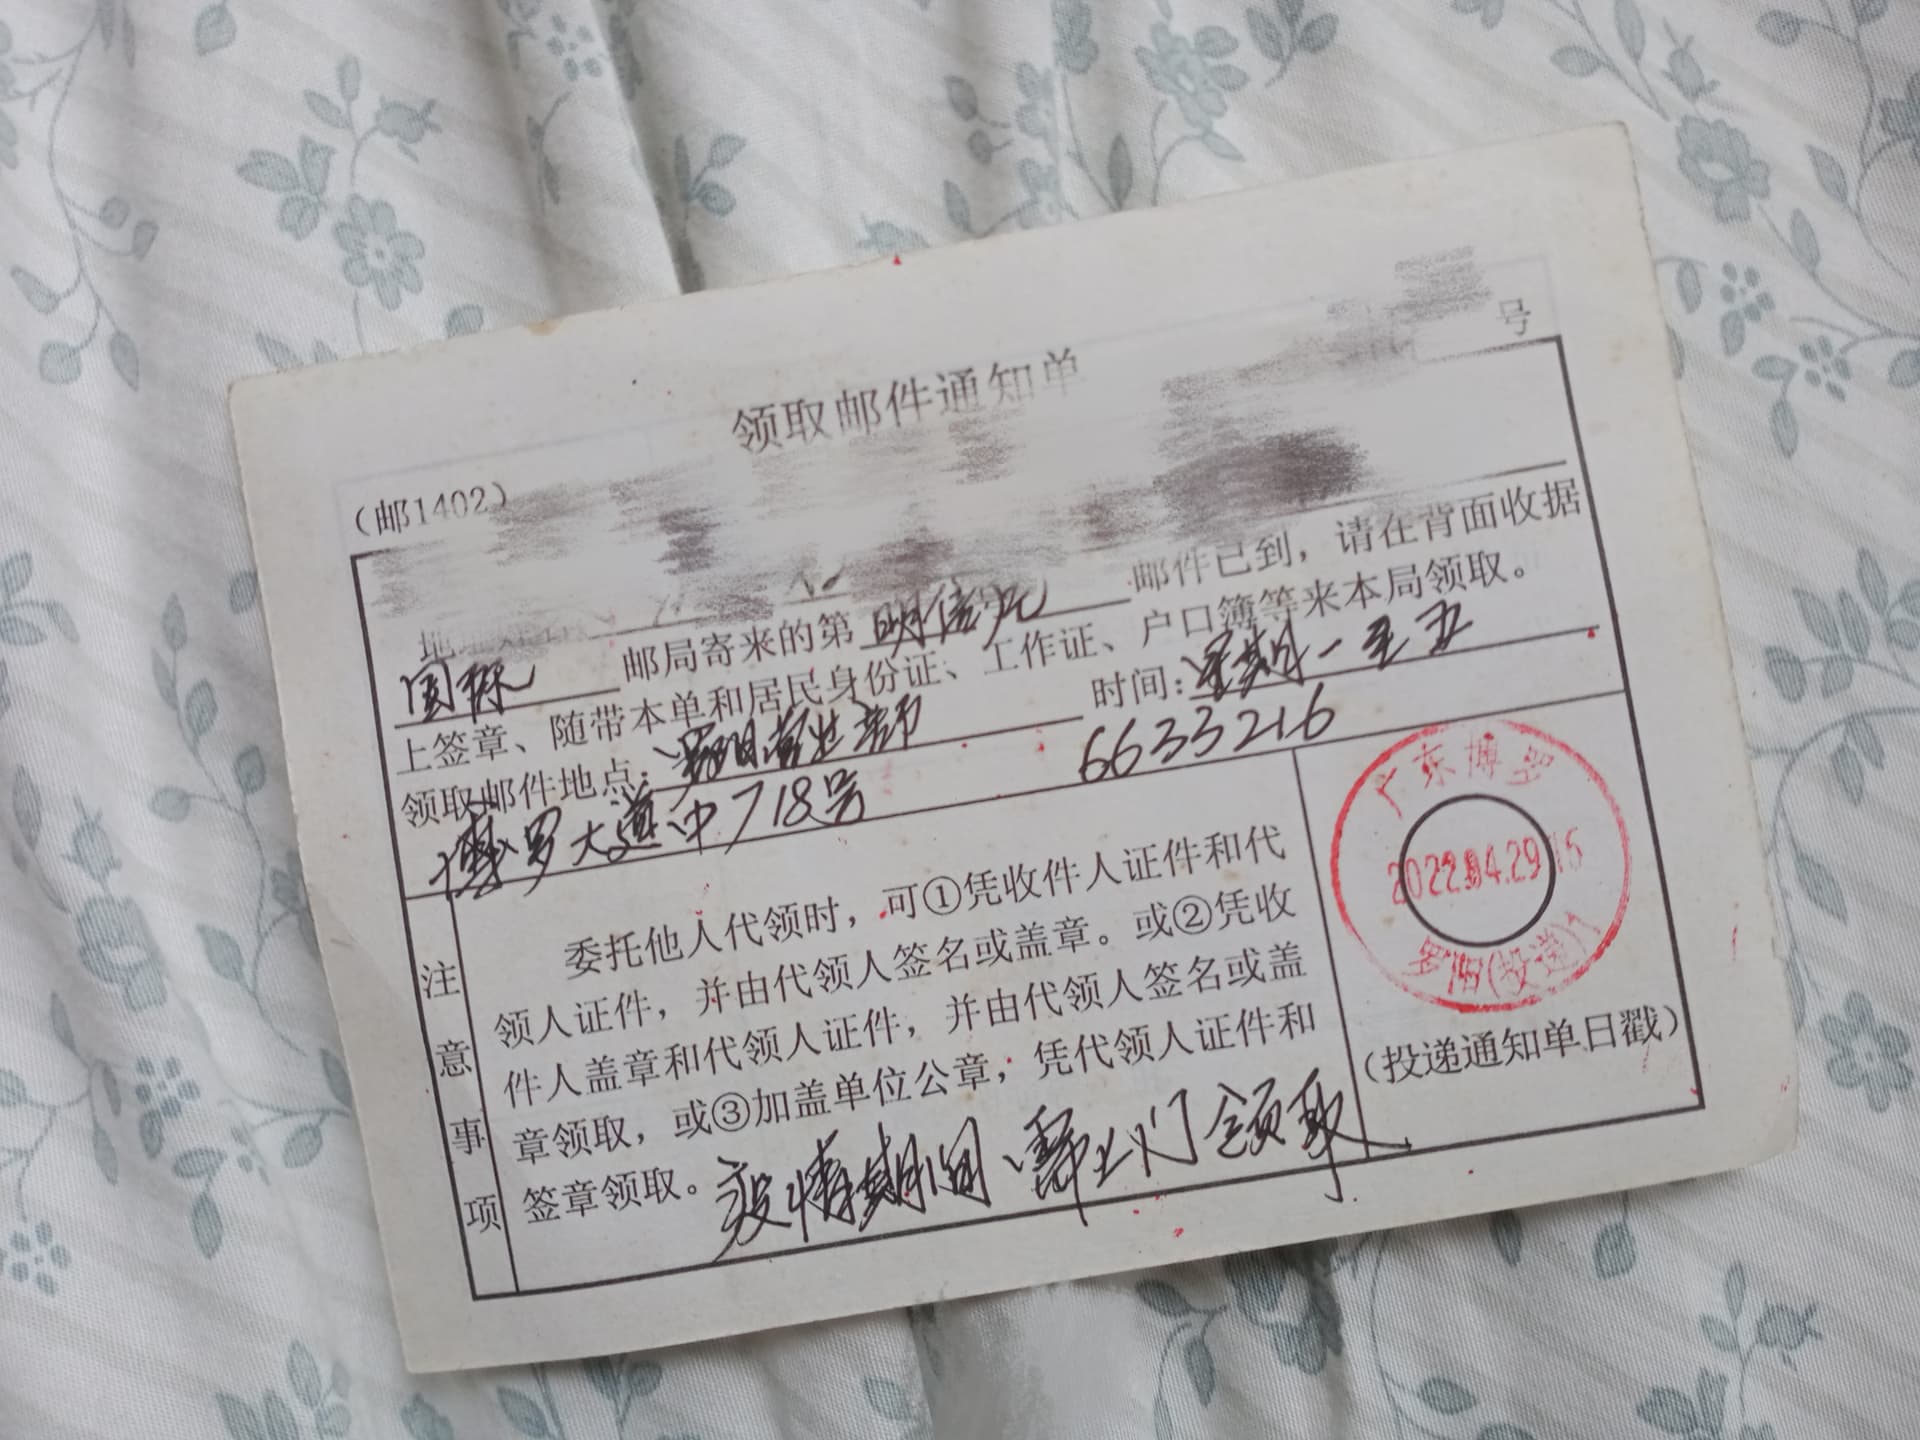 号
领取邮件通知单
(邮1402)
国际 邮局寄来的第 明信片 邮件已到，请在背面收据
上签章、随带本单和居民身份证、工作证、户口簿等来本局领取。
领取邮件地点：罗阳营业部 时间：星期一至五
博罗大道中718号 6633216
注意事项
委托他人代领时，可①凭收件人证件和代
领人证件，并由代领人签名或盖章。或②凭收
件人盖章和代领人证件，并由代领人签名或盖
章领取，或③加盖单位公章，凭代领人证件和
签章领取。疫情期间 需上门领取
广东博罗
2022.04.29 15
(投递)1
(投递通知单日戳)